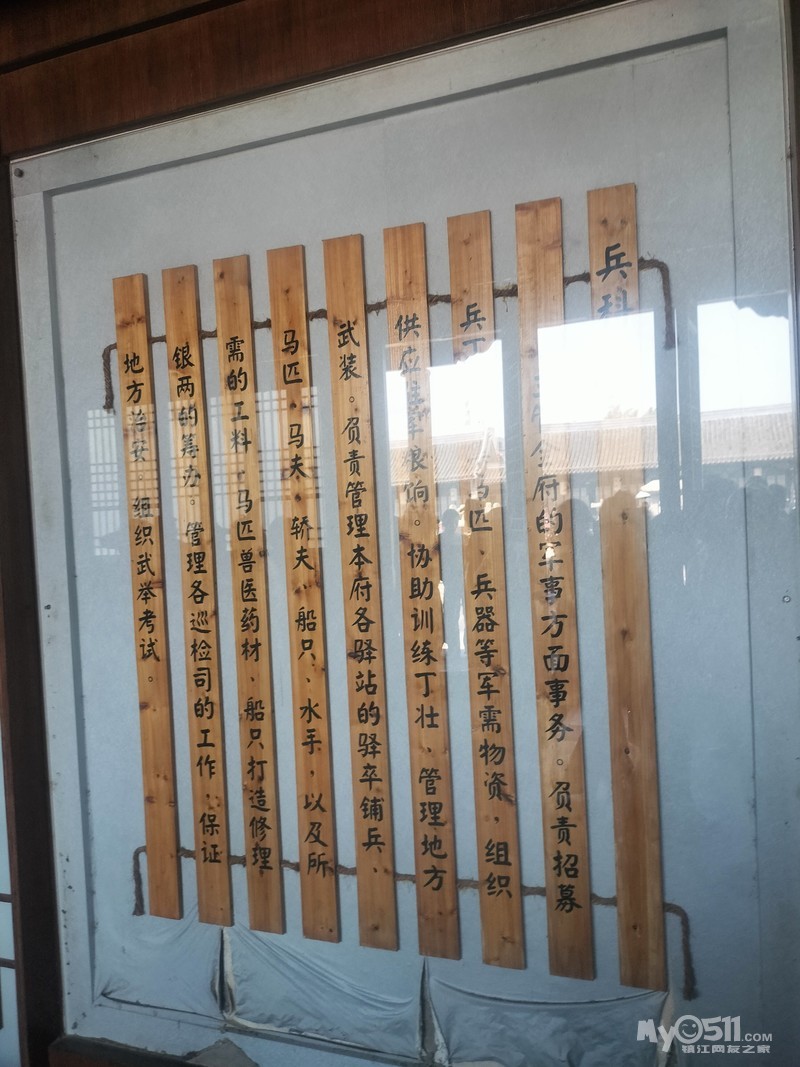 兵科
全府的军事方面事务。负责招募
兵丁马匹、兵器等军需物资，组织
供应军粮饷。协助训练丁壮、管理地方
武装。负责管理本府各驿站的驿卒铺兵、
马匹、马夫、轿夫、船只、水手，以及所
需的工料、马匹兽医药材、船只打造修理
银两的筹办。管理各巡检司的工作，保证
地方治安。组织武举考试。
MyO511.COM
镇江网友之家